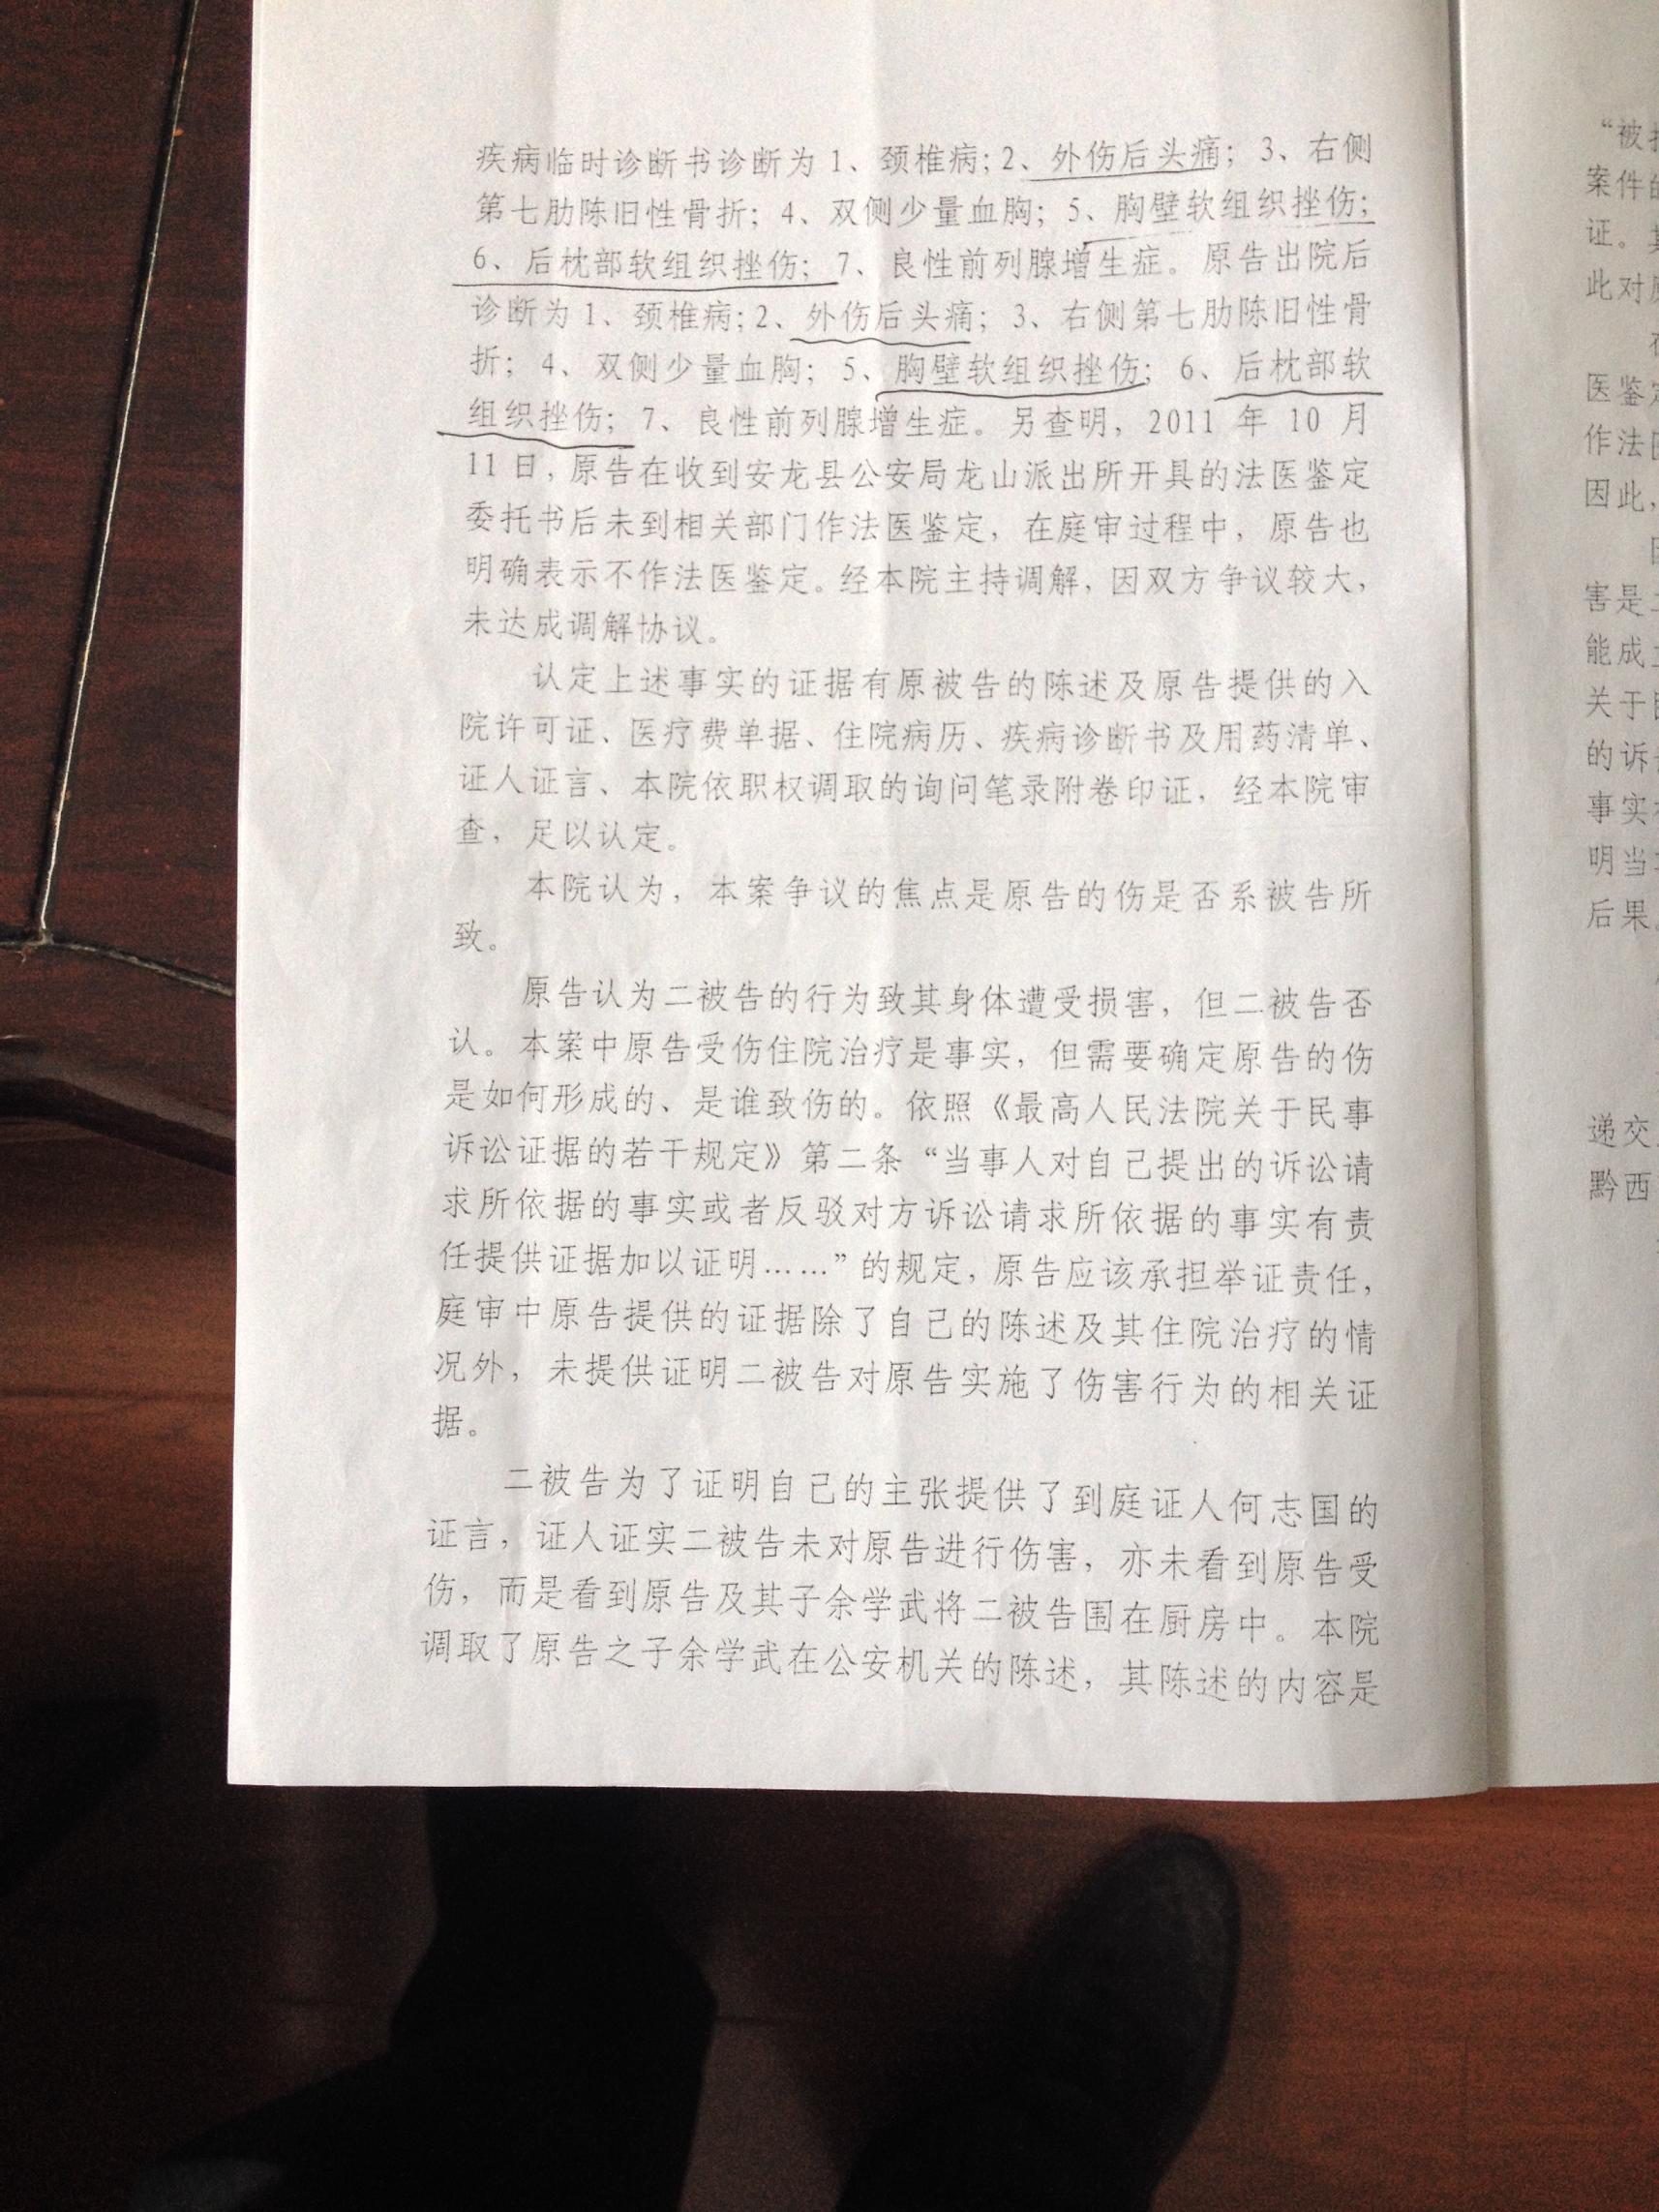 疾病临时诊断书诊断为 1、颈椎病; 2、外伤后头痛; 3、右侧
第七肋陈旧性骨折; 4、双侧少量血胸; 5、胸壁软组织挫伤;
6、后枕部软组织挫伤; 7、良性前列腺增生症。原告出院后
诊断为 1、颈椎病; 2、外伤后头痛; 3、右侧第七肋陈旧性骨
折; 4、双侧少量血胸; 5、胸壁软组织挫伤; 6、后枕部软
组织挫伤; 7、良性前列腺增生症。另查明, 2011 年 10 月
11 日, 原告在收到安龙县公安局龙山派出所开具的法医鉴定
委托书后未到相关部门作法医鉴定, 在庭审过程中, 原告也
明确表示不作法医鉴定。经本院主持调解, 因双方争议较大,
未达成调解协议。
认定上述事实的证据有原被告的陈述及原告提供的入
院许可证、医疗费单据、住院病历、疾病诊断书及用药清单、
证人证言、本院依职权调取的询问笔录附卷印证, 经本院审
查, 足以认定。
本院认为, 本案争议的焦点是原告的伤是否系被告所
致。
原告认为二被告的行为致其身体遭受损害, 但二被告否
认。本案中原告受伤住院治疗是事实, 但需要确定原告的伤
是如何形成的、是谁致伤的。依照《最高人民法院关于民事
诉讼证据的若干规定》第二条“当事人对自己提出的诉讼请
求所依据的事实或者反驳对方诉讼请求所依据的事实有责
任提供证据加以证明……”的规定, 原告应该承担举证责任,
庭审中原告提供的证据除了自己的陈述及其住院治疗的情
况外, 未提供证明二被告对原告实施了伤害行为的相关证
据。
二被告为了证明自己的主张提供了到庭证人何志国的
证言, 证人证实二被告未对原告进行伤害, 亦未看到原告受
伤, 而是看到原告及其子余学武将二被告围在厨房中。本院
调取了原告之子余学武在公安机关的陈述, 其陈述的内容是
“被
案件
证。
此对
医鉴
作法
因此,
害是
能成
关于
的诉
事实
明当
后果
递交
黔西